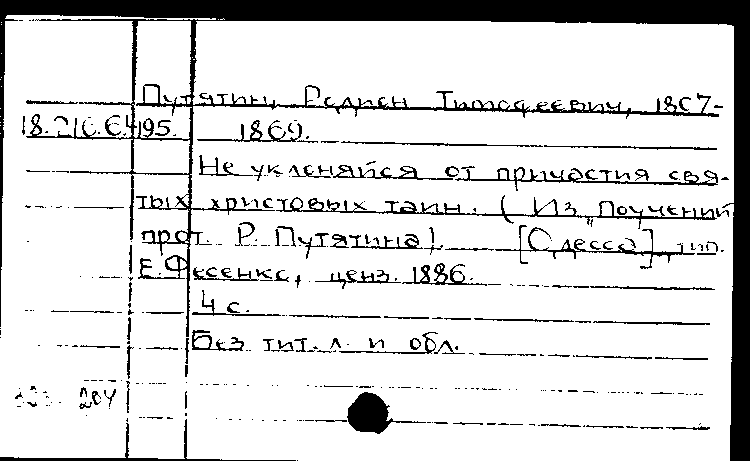 Путятин, Родион Тимофеевич, 1807-
18.216.6.495. 1869.
Не уклоняйся от причастия свя-
тых христовых таин. (Из „Поучений
прот. Р. Путятина). [Одесса], тип.
Е. Фесенко, ценз. 1886.
4 с.
Без тит. л. и обл.
204